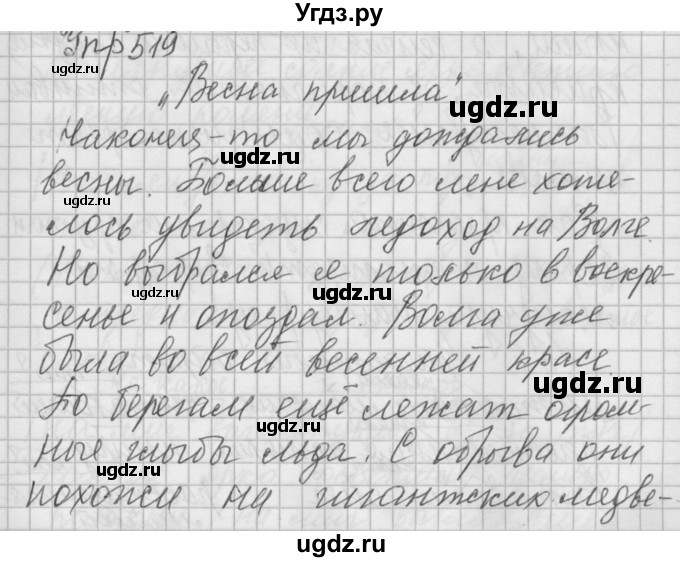 Угдз.ру
Упр 519
ugdz.ru
„Весна пришла"
ugdz.ru
Наконец-то мы дождались
ugdz.ru
весны. Больше всего мне хоте-
ugdz.ru
лось увидеть ледоход на Волге.
Но выбрался я только в воскре-
ugdz.ru
сенье и опоздал. Волга уже
была во всей весенней красе.
ugdz.ru
ugdz.ru
По берегам ещё лежат огром-
ugdz.ru
ные глыбы льда. С обрыва они
ugdz.ru
похожи на гигантских медве-
ugdz.ru
ugdz.ru